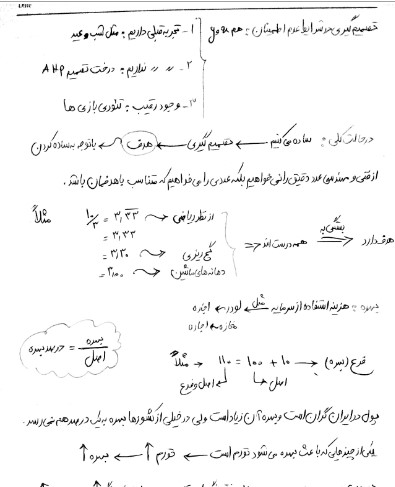 تصمیم گیری در شرایط عدم اطمینان:
۱- تجربه قبلی داریم: مثل شب عید
۲- 〃 〃 نداریم: درخت تصمیم AHP
۳- وجود رقیب: تئوری بازی ها
در حالت کلی: ساده می کنیم ← تصمیم گیری ← هدف ← با توجه به ساده کردن
از فنی و مهندسی عدد دقیق را نمی خواهیم بلکه عددی را می خواهیم که متناسب با هدفمان باشد.
مثلاً ۱۰/۳ = ۳,۳۳ ← از نظر ریاضی
= ۳,۳۳
= ۳,۳۰ ← گچ ریزی
= ۳,۰۰ ← دهانه های ساختمان
⇐ همه درست اند ⇐ بستگی به هدف دارد
بهره: هزینه استفاده از سرمایه مثل لودر ← اجاره
مغازه ← اجاره
درصد بهره = بهره / اصل
مثلاً ← ۱۱۰ = ۱۰۰ + ۱۰ ← فرع (بهره)
اصل و فرع اصل
پول در ایران گران است و بهره آن زیاد است ولی در خیلی از کشورها بهره به یک درصد هم نمی رسد.
یکی از چیزهایی که باعث بهره می شود تورم است ← تورم ↑ ← بهره ↑